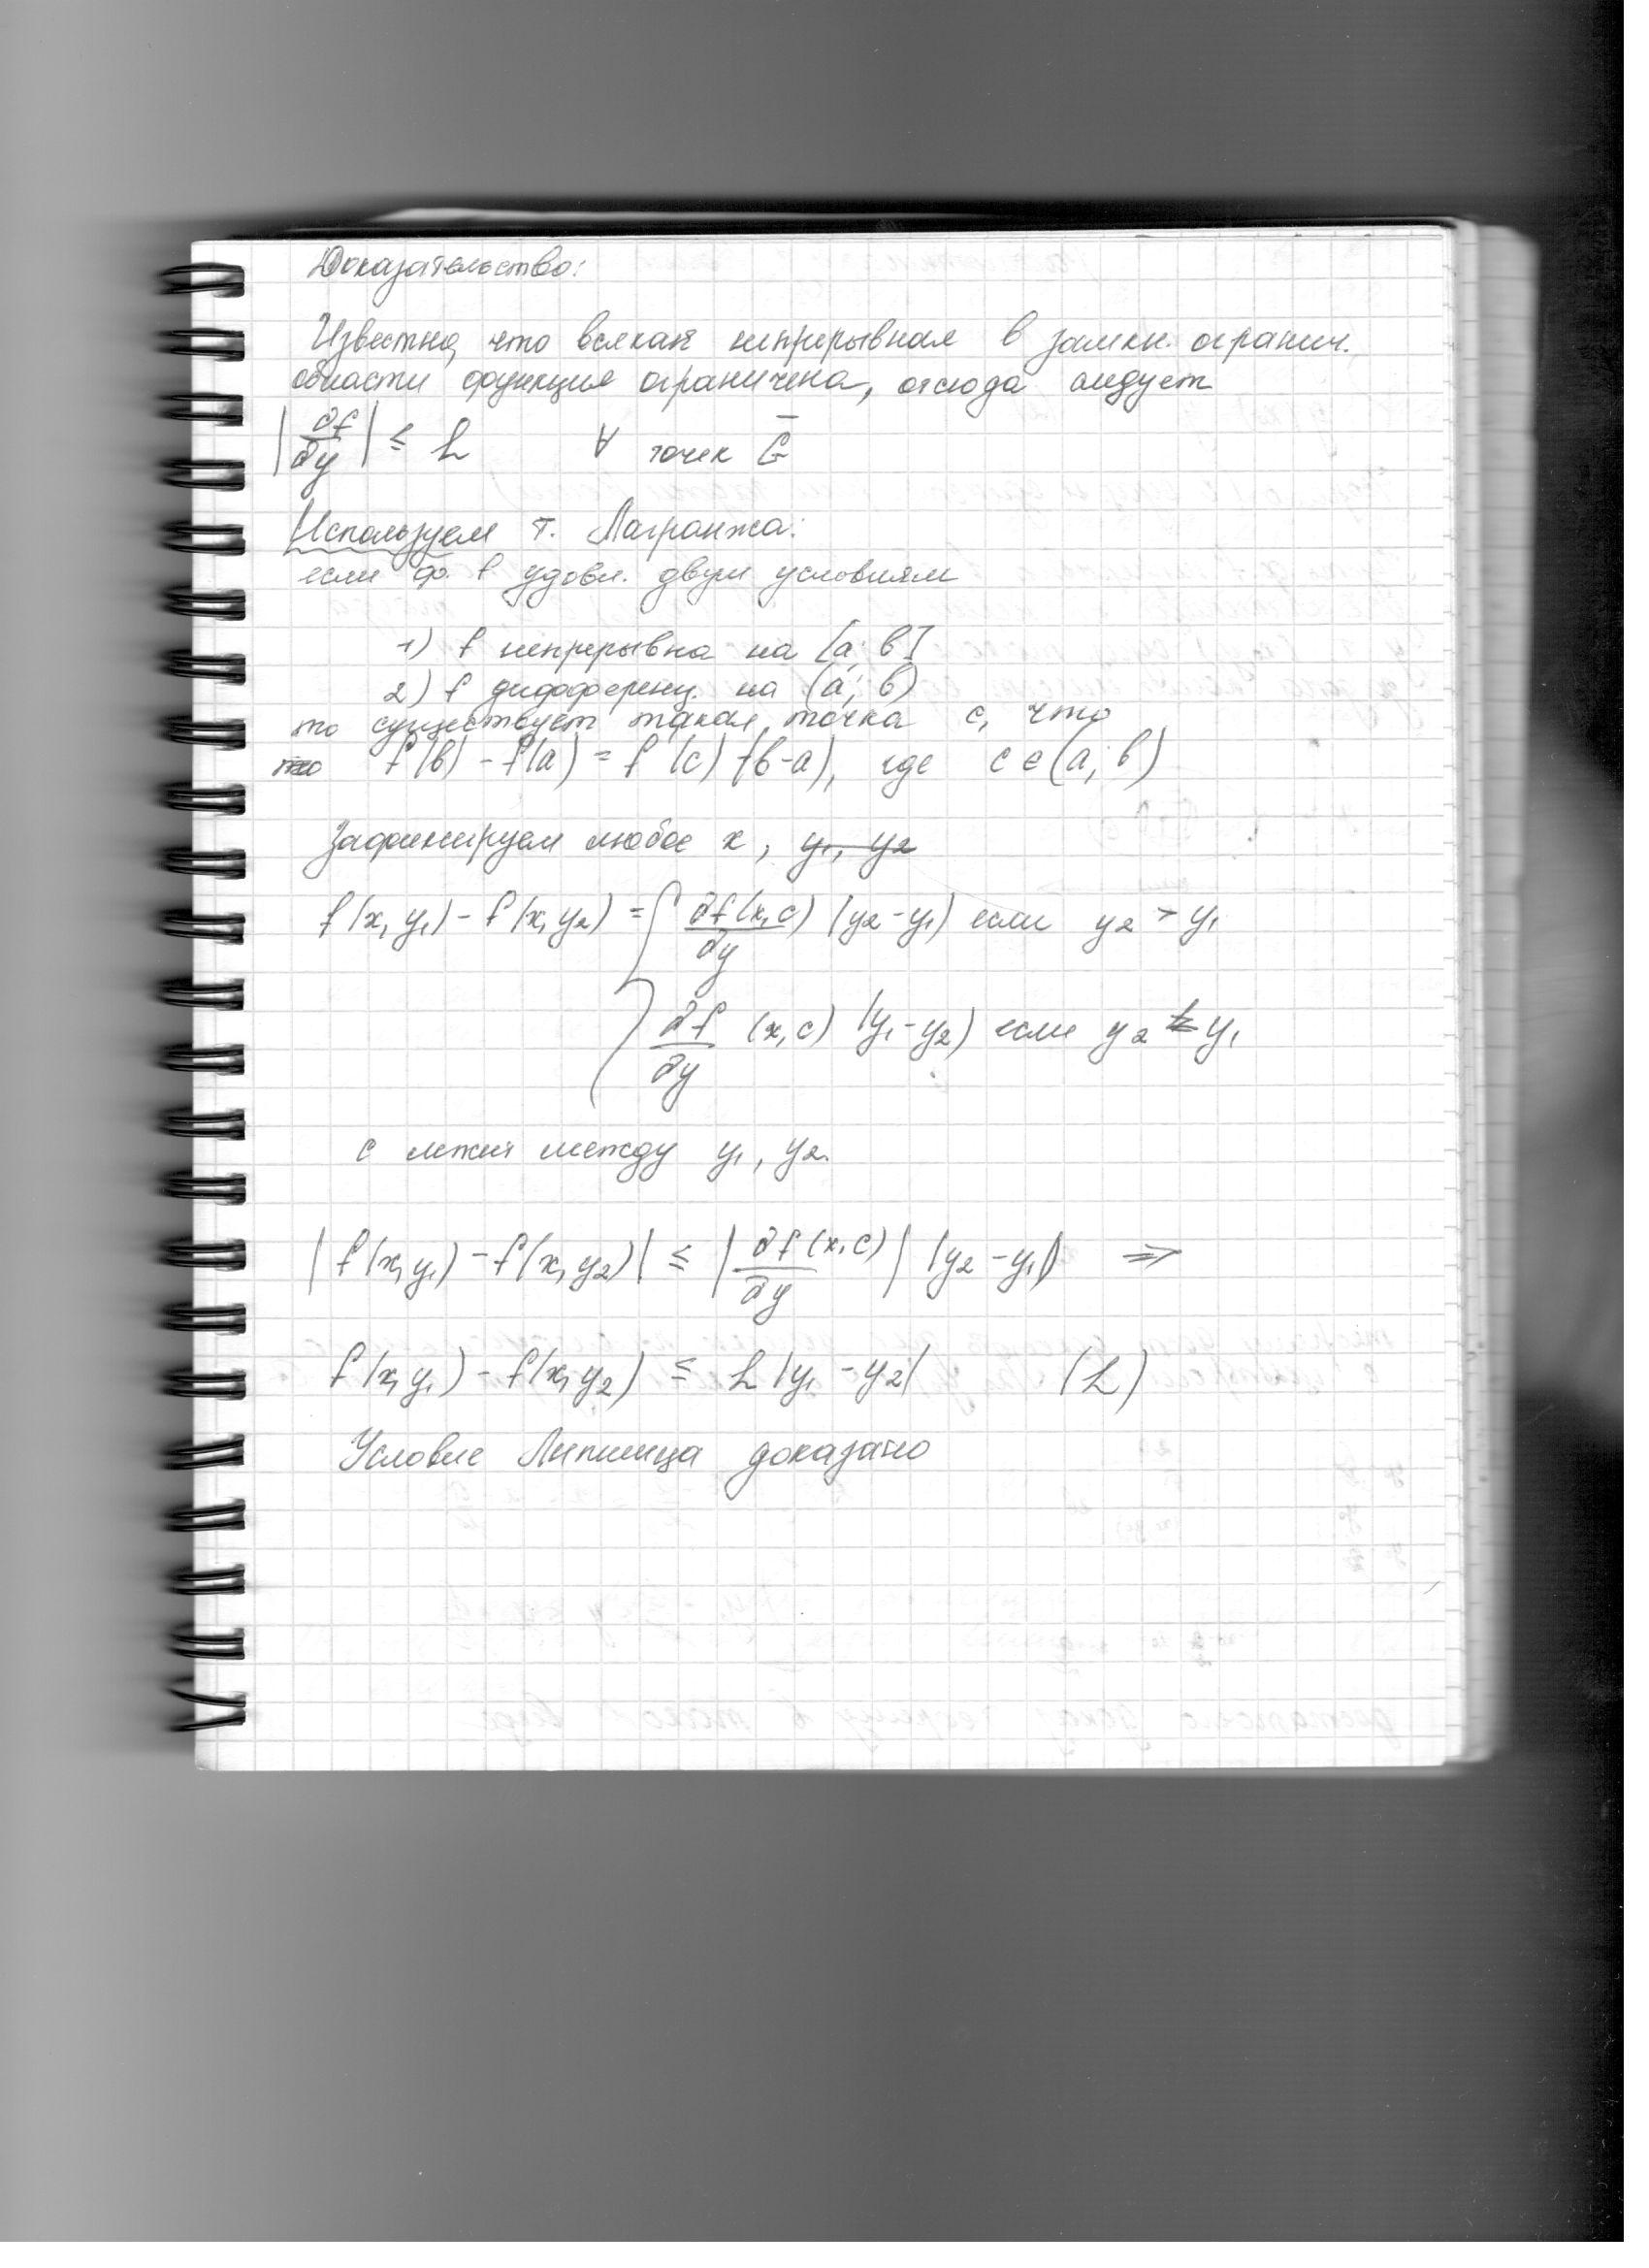 Доказательство:
Известно, что всякая непрерывная в замкн. огранич.
области функция ограничена, отсюда следует
|∂f/∂y| ≤ L ∀ точек G̅
Используем т. Лагранжа:
если ф. f удовл. двум условиям
1) f непрерывна на [a; b]
2) f дифференц. на (a; b)
то существует такая точка c, что
f(b) - f(a) = f'(c) (b-a), где c ∈ (a; b)
Зафиксируем любое x, y₁, y₂
f(x, y₁) - f(x, y₂) = { ∂f(x, c)/∂y (y₂ - y₁) если y₂ > y₁
∂f/∂y (x, c) (y₁ - y₂) если y₂ < y₁
c лежит между y₁, y₂.
|f(x, y₁) - f(x, y₂)| ≤ |∂f(x, c)/∂y| |y₂ - y₁| ⇒
f(x, y₁) - f(x, y₂) ≤ L |y₁ - y₂| (L)
Условие Липшица доказано